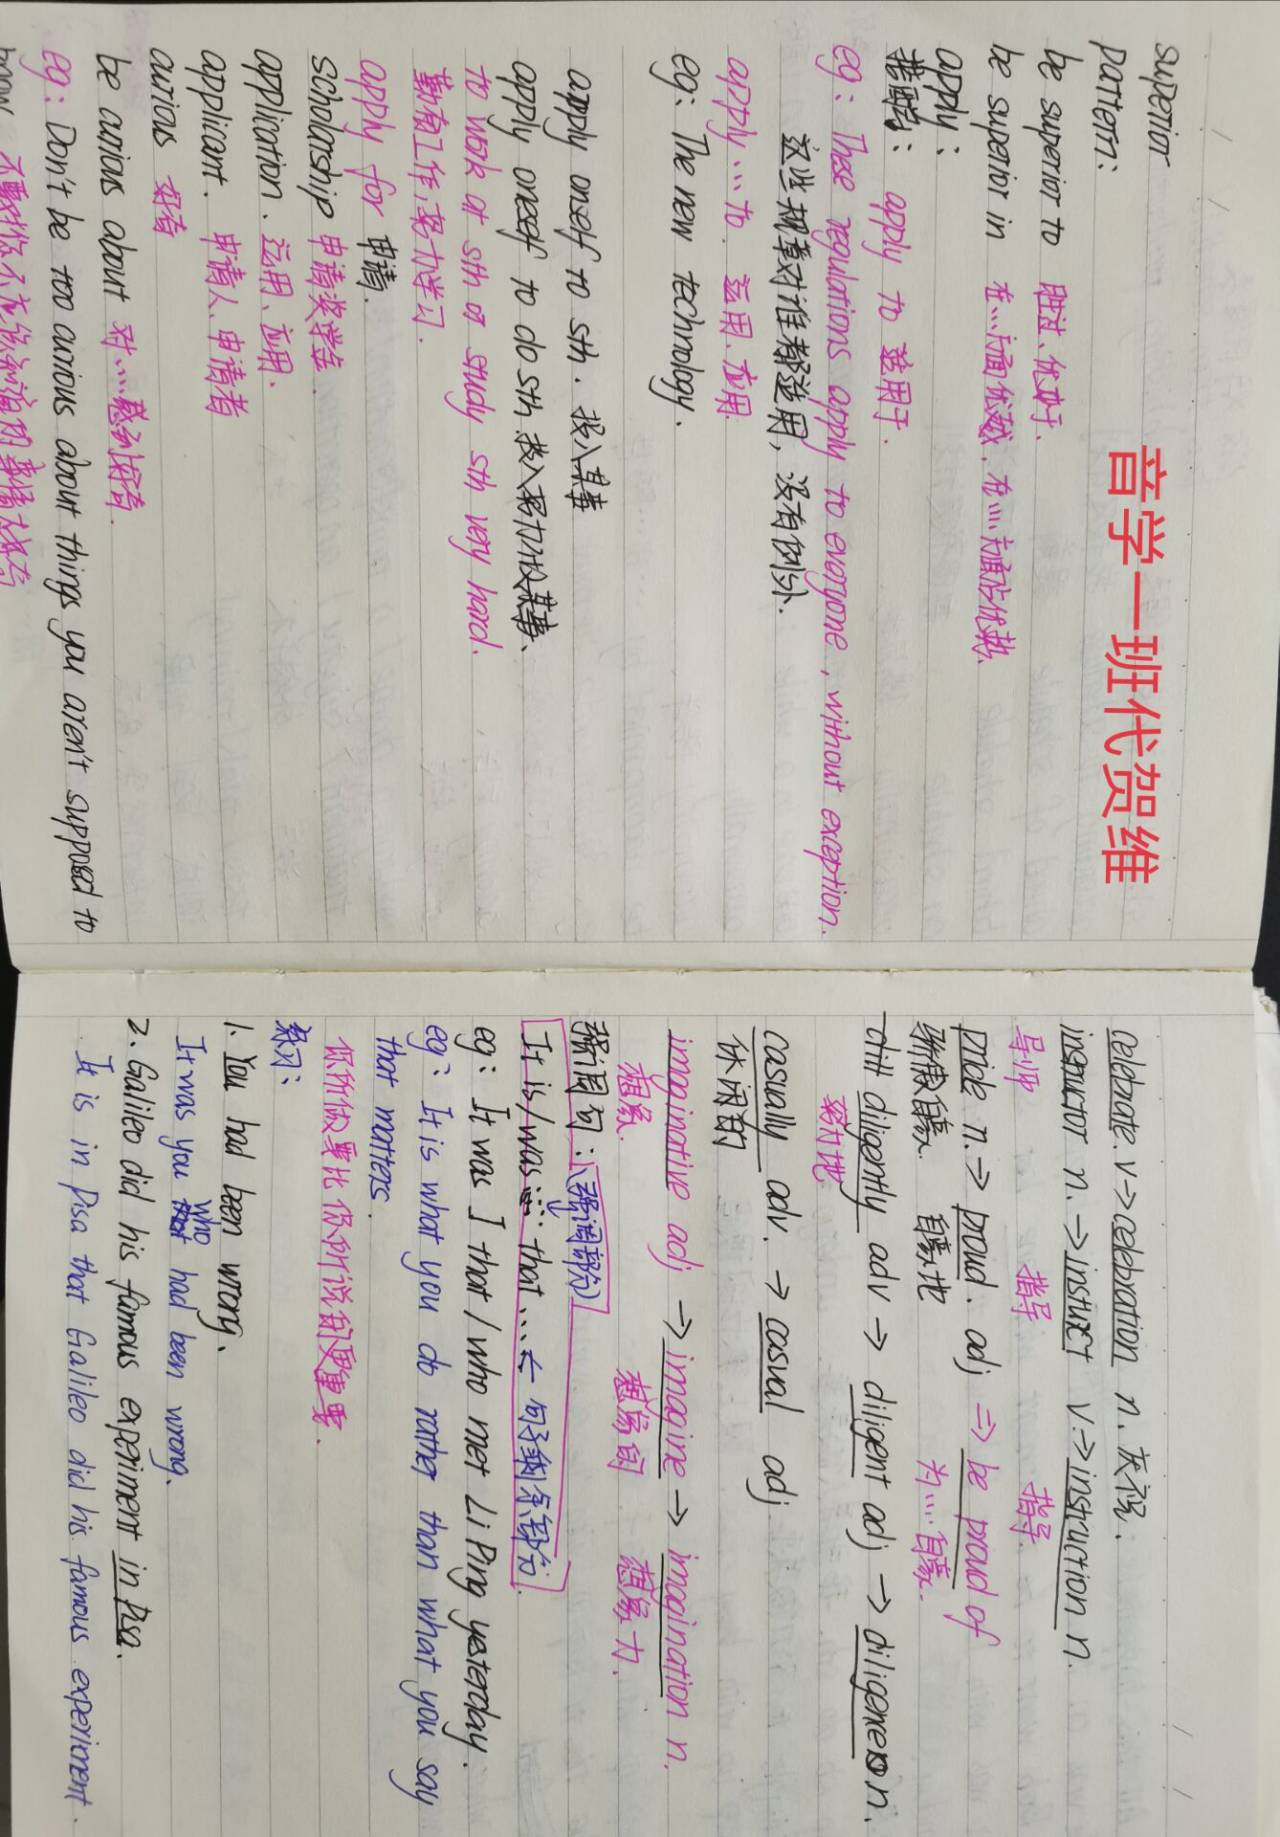 音学一班代贺维
superior
pattern:
be superior to 胜过、优于.
be superior in 在…方面优越, 在…方面占优势.
apply:
搭配: apply to 适用于.
eg: These regulations apply to everyone, without exception.
这些规章对谁都适用, 没有例外.
apply…to. 运用. 应用.
eg: The new technology.
apply onself to sth. 投入某事
apply oneself to do sth. 投入努力做某事.
to work at sth or study sth very hard.
勤奋工作, 努力学习.
apply for 申请.
scholarship 申请奖学金
application. 运用、应用.
applicant. 申请人、申请者
curious 好奇
be curious about 对…感到好奇.
eg: Don't be too curious about things you aren't supposed to
know
celebrate. v→celebration n. 庆祝.
instructor n. →instuct v.→instruction n.
导师 指导 指导.
pride n.→ proud. adj ⇒ be proud of
骄傲自豪 自豪地 为…自豪.
diligently adv → diligent adj → diligence n.
努力地
casually adv. → casual adj
休闲的
imaginative adj →imagine → imagination n.
想象. 想象的 想象力.
强调句: (强调部分)
It is/was … that …. ← 句子剩余部分.
eg: It was I that/who met Li Ping yesterday.
eg: It is what you do rather than what you say
that matters.
你所做要比你所说的更重要.
练习:
1. You had been wrong.
It was you who had been wrong.
2. Galileo did his famous experiment in Pisa.
It is in Pisa that Galileo did his famous experiment.